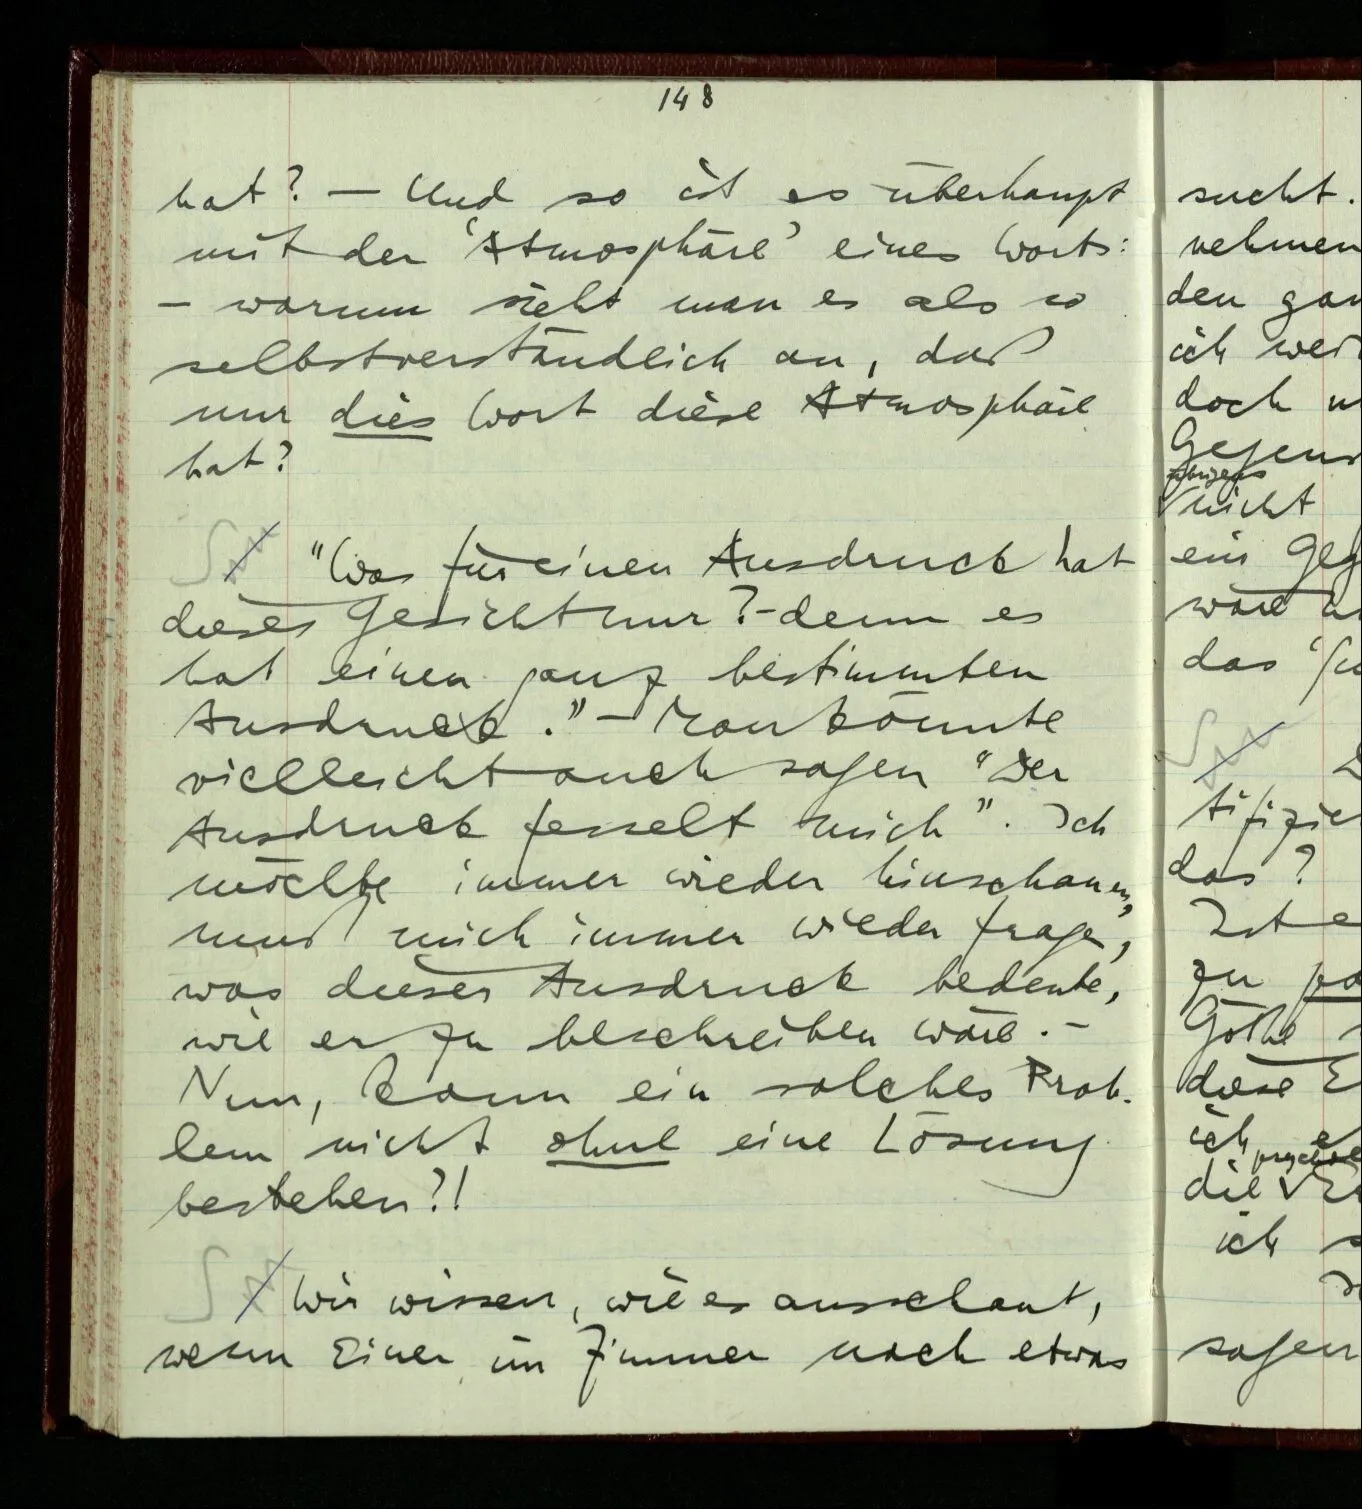 148
hat? – Und so ist es überhaupt
mit der 'Atmosphäre' eines Worts:
– warum sieht man es als so
selbstverständlich an, daß
nur dies Wort diese Atmosphäre
hat?
"Was für einen Ausdruck hat
dieses Gesicht nur? – denn es
hat einen ganz bestimmten
Ausdruck." – Man könnte
vielleicht auch sagen "Der
Ausdruck fesselt mich". Ich
möchte immer wieder hinschauen,
muß mich immer wieder fragen,
was dieser Ausdruck bedeute,
wie er zu beschreiben wäre. –
Nun, kann ein solches Prob-
lem nicht ohne eine Lösung
bestehen?!
Wir wissen, wie es ausschaut,
wenn Einer im Zimmer nach etwas
sucht.
nehmen
den gan
ich wei
doch
Gegens
übrigens
nicht
ein Geg
wäre
das
tifizie
das?
Ist e
zu
Göthe
diese
ich
die
ich
sagen